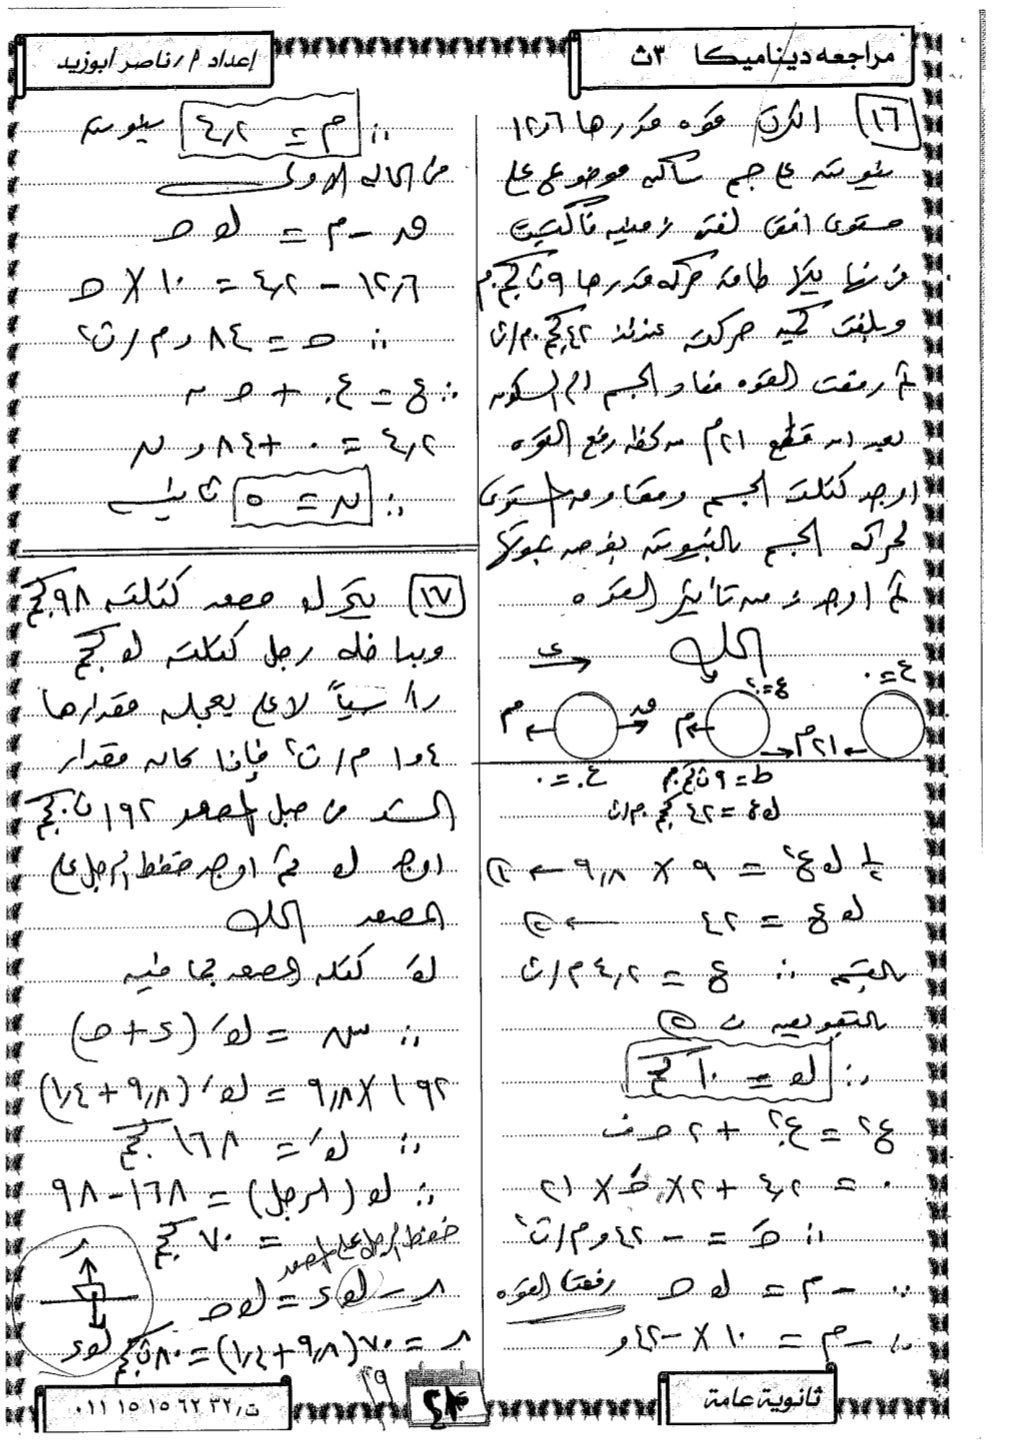 مراجعه ديناميكا ٣ث
إعداد م/ ناصر ابوزيد
١٦ اثرت قوه قدرها ١٢٫٦
نيوتن على جسم ساكن موضوع على
مستوى افقى لفترة زمنيه فاكتسبت
فى نهايتها طاقة حركه قدرها ٩ ث كجم.م
وبلغت كميه حركته عندئذ ٤٢ كجم.م/ث
ثم رفعت القوه فعاد الجسم الى السكون
بعد ان قطع ٢١ م من لحظه رفع القوه
اوجد كتلة الجسم ومقاومه المستوى
لحركه الجسم بالنيوتن بفرض ثبوتها
ثم اوجد زمن تأثير القوه
الحل
ى
ع = ٠
ع = ?
م
ق
م
٢١ م
ع. = ٠
ط = ٩ ث كجم.م
ك ع = ٤٢ كجم.م/ث
½ ك ع² = ٩ × ٩٫٨ ← ①
ك ع = ٤٢ ← ②
بالقسمه ∴ ع = ٤٫٢ م/ث
بالتعويض فى ②
∴ ك = ١٠ كجم
ع² = ع.² + ٢ حـ ف
٠ = ٤٫٢ + ٢ × حـَ × ٢١
∴ حـَ = - ٤٢و م/ث²
∵ - م = ك حـ رفعنا القوه
∴ - م = ١٠ × - ٤٢و
∴ م = ٤٫٢ نيوتن
من الحاله الاولى
ق - م = ك حـ
١٢٫٦ - ٤٫٢ = ١٠ × حـ
∴ حـ = ٨٤و م/ث²
∴ ع = ع. + حـ ن
٤٫٢ = ٠ + ٨٤و ن
∴ ن = ٥ ثانيه
١٧ يتحرك مصعد كتلته ٩٨ كجم
وبداخله رجل كتلته ك كجم
رأسياً لاعلى بعجلة مقدارها
١٫٤ م/ث² فإذا كان مقدار
الشد فى حبل المصعد ١٩٢ ث.كجم
اوجد ك ثم اوجد ضغط الرجل على
المصعد الحل
كَ كتله المصعد بما فيه
∴ ش = كَ (ء + حـ)
١٩٢ × ٩٫٨ = كَ (٩٫٨ + ١٫٤)
∴ كَ = ١٦٨ كجم
∴ ك (الرجل) = ١٦٨ - ٩٨
= ٧٠ كجم
ضغط الرجل على المصعد
ر - ك ء = ك حـ
ر = ٧٠ (٩٫٨ + ١٫٤) = ٨٠ ث كجم
ر
ك ء
ثانوية عامة
ت/ ٠١١١٥١٥٦٢٣٢